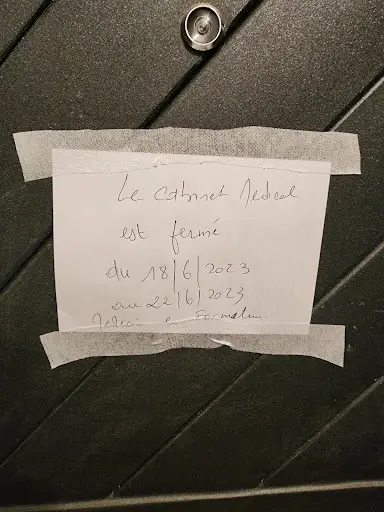 Le Cabinet Medical
est fermé
du 18/6/2023
au 22/6/2023
Medecin en Formation